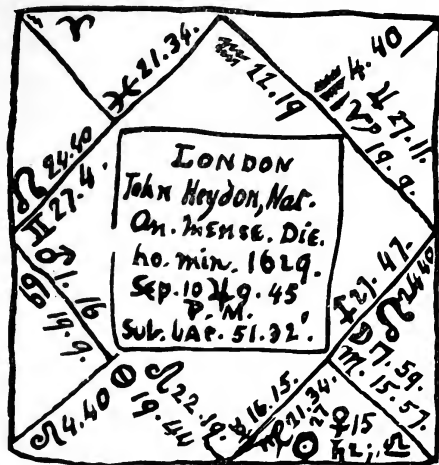 ♈
♓ 21.34.
♒ 22.19
♑ 4.40
♃ 27.11.
19.9.
☊ 24.40
♊ 27.4.
♂ 1.16
♋ 19.9.
LONDON
John Heydon, Nat.
An. mense. Die.
ho. min. 1629.
Sep. 10 ♃ 9.45
P.M.
Sub. LAP. 51.32'.
♐ 27.47.
☋ 24.40
☽ 7.59.
♏ 15.57.
♌ 4.40
♌ 22.19.
19.44
16.15.
♍ 21.34.
☉ 27
♀ 15
♄ 2; ♎